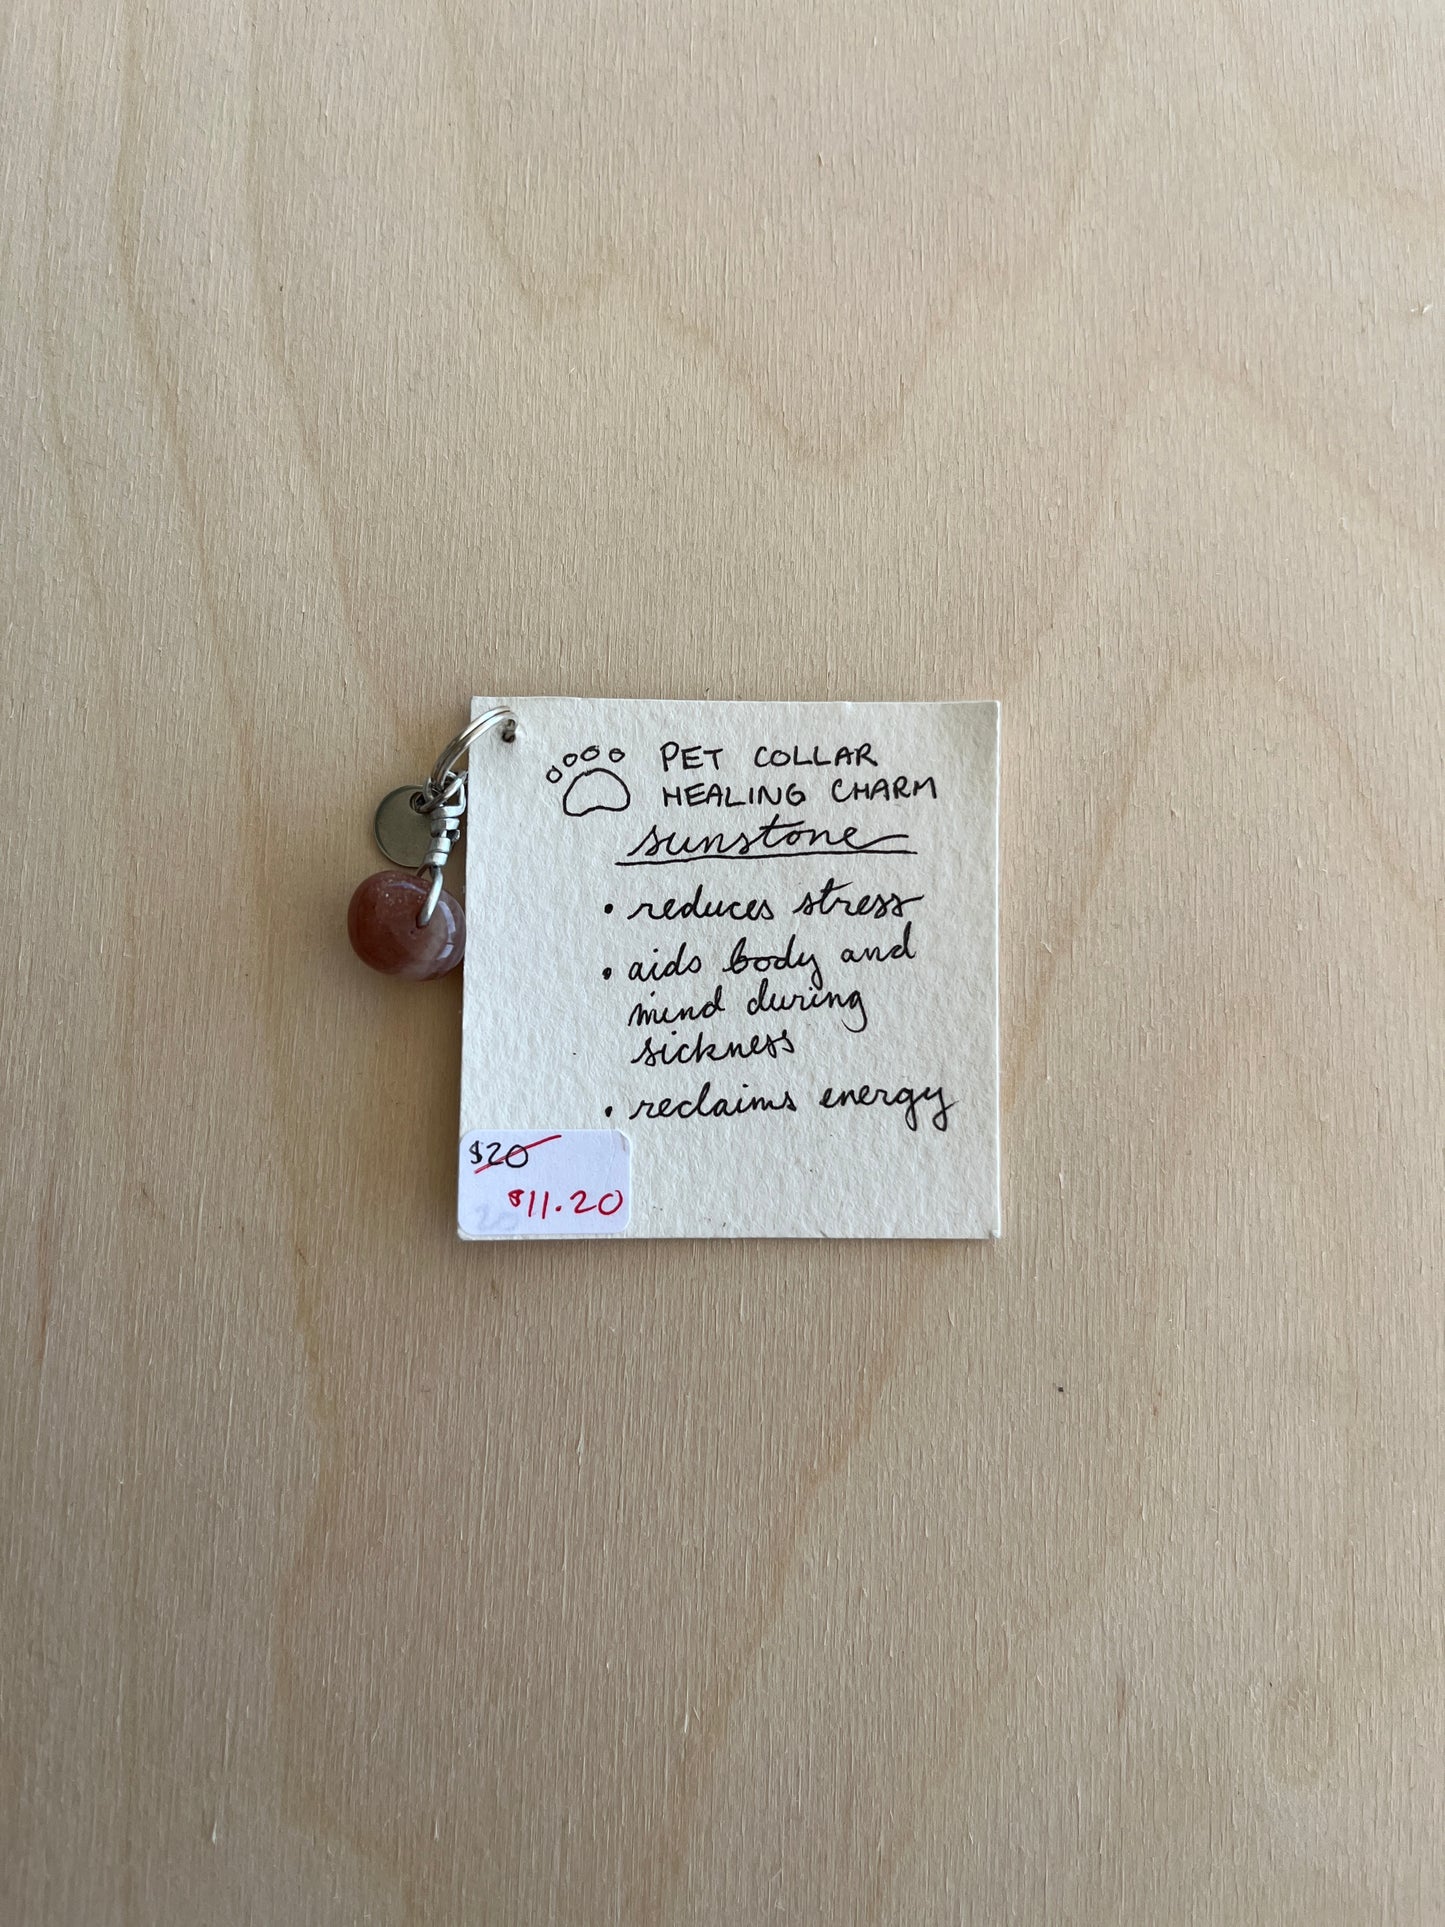 PET COLLAR
HEALING CHARM
sunstone
• reduces stress
• aids body and
mind during
sickness
• reclaims energy
$20
$11.20
20